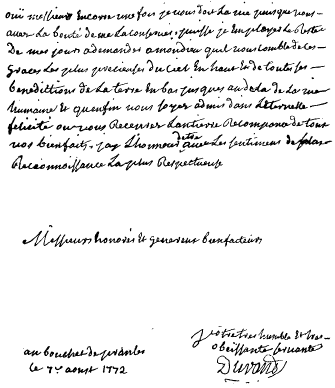 oüi messieurs Encore une fois je vous dois La vie puisque vous
avez La bonté de me La conserver, puissé je Employer Le Reste
De mes jours a demander a mon dieu quil vous comble de ses
graces Les plus precieuses du Ciel En haut Et de toutes ses
benedictions De la terre En bas jusques au dela de La vie
humaine Et quenfin vous soyez admis dans Leternelle
felicité ou vous Recevrez Lentierre Recompence de tous
vos bienfaits, jay Lhonneur detre avec Les sentimens de
Reconnoissance La plus Respectueuse
Messieurs honorés Et genereux bienfacteurs
Votre tres humble Et tres
obeissante servante
au bouchet de
Le 7e aoust 1772
Durand